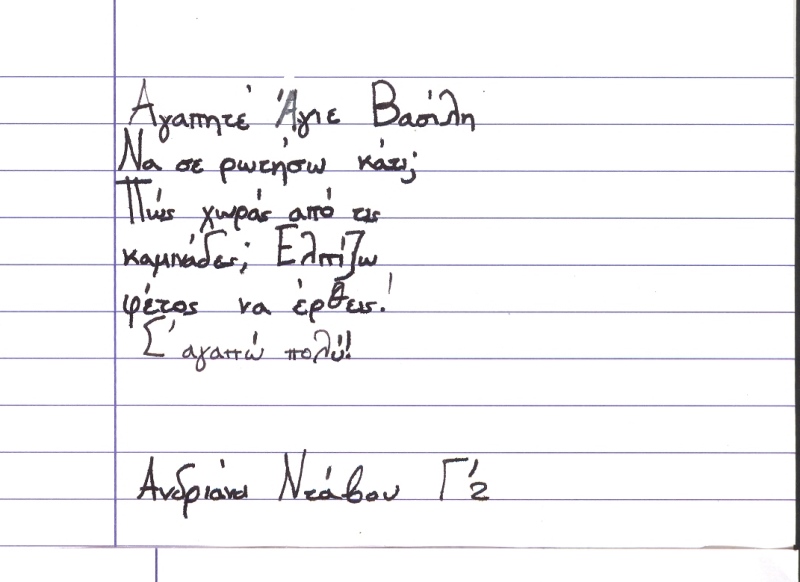 Αγαπητέ Άγιε Βασίλη
Να σε ρωτήσω κάτι;
Πώς χωράς από τις
καμινάδες; Ελπίζω
φέτος να έρθεις!
Σ' αγαπώ πολύ!
Ανδριάνα Ντάβου Γ'2